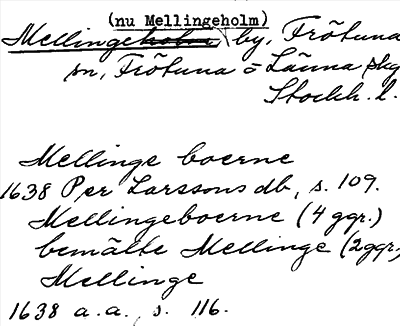 (nu Mellingeholm)
Mellingeholm, by, Frötuna
sn, Frötuna o Länna skg
Stockh. l.
Mellinge boerne
1638 Per Larssons db, s. 109.
Mellingeboerne (4 ggr.)
bemälte Mellinge (2ggr.)
Mellinge
1638 a.a., s. 116.